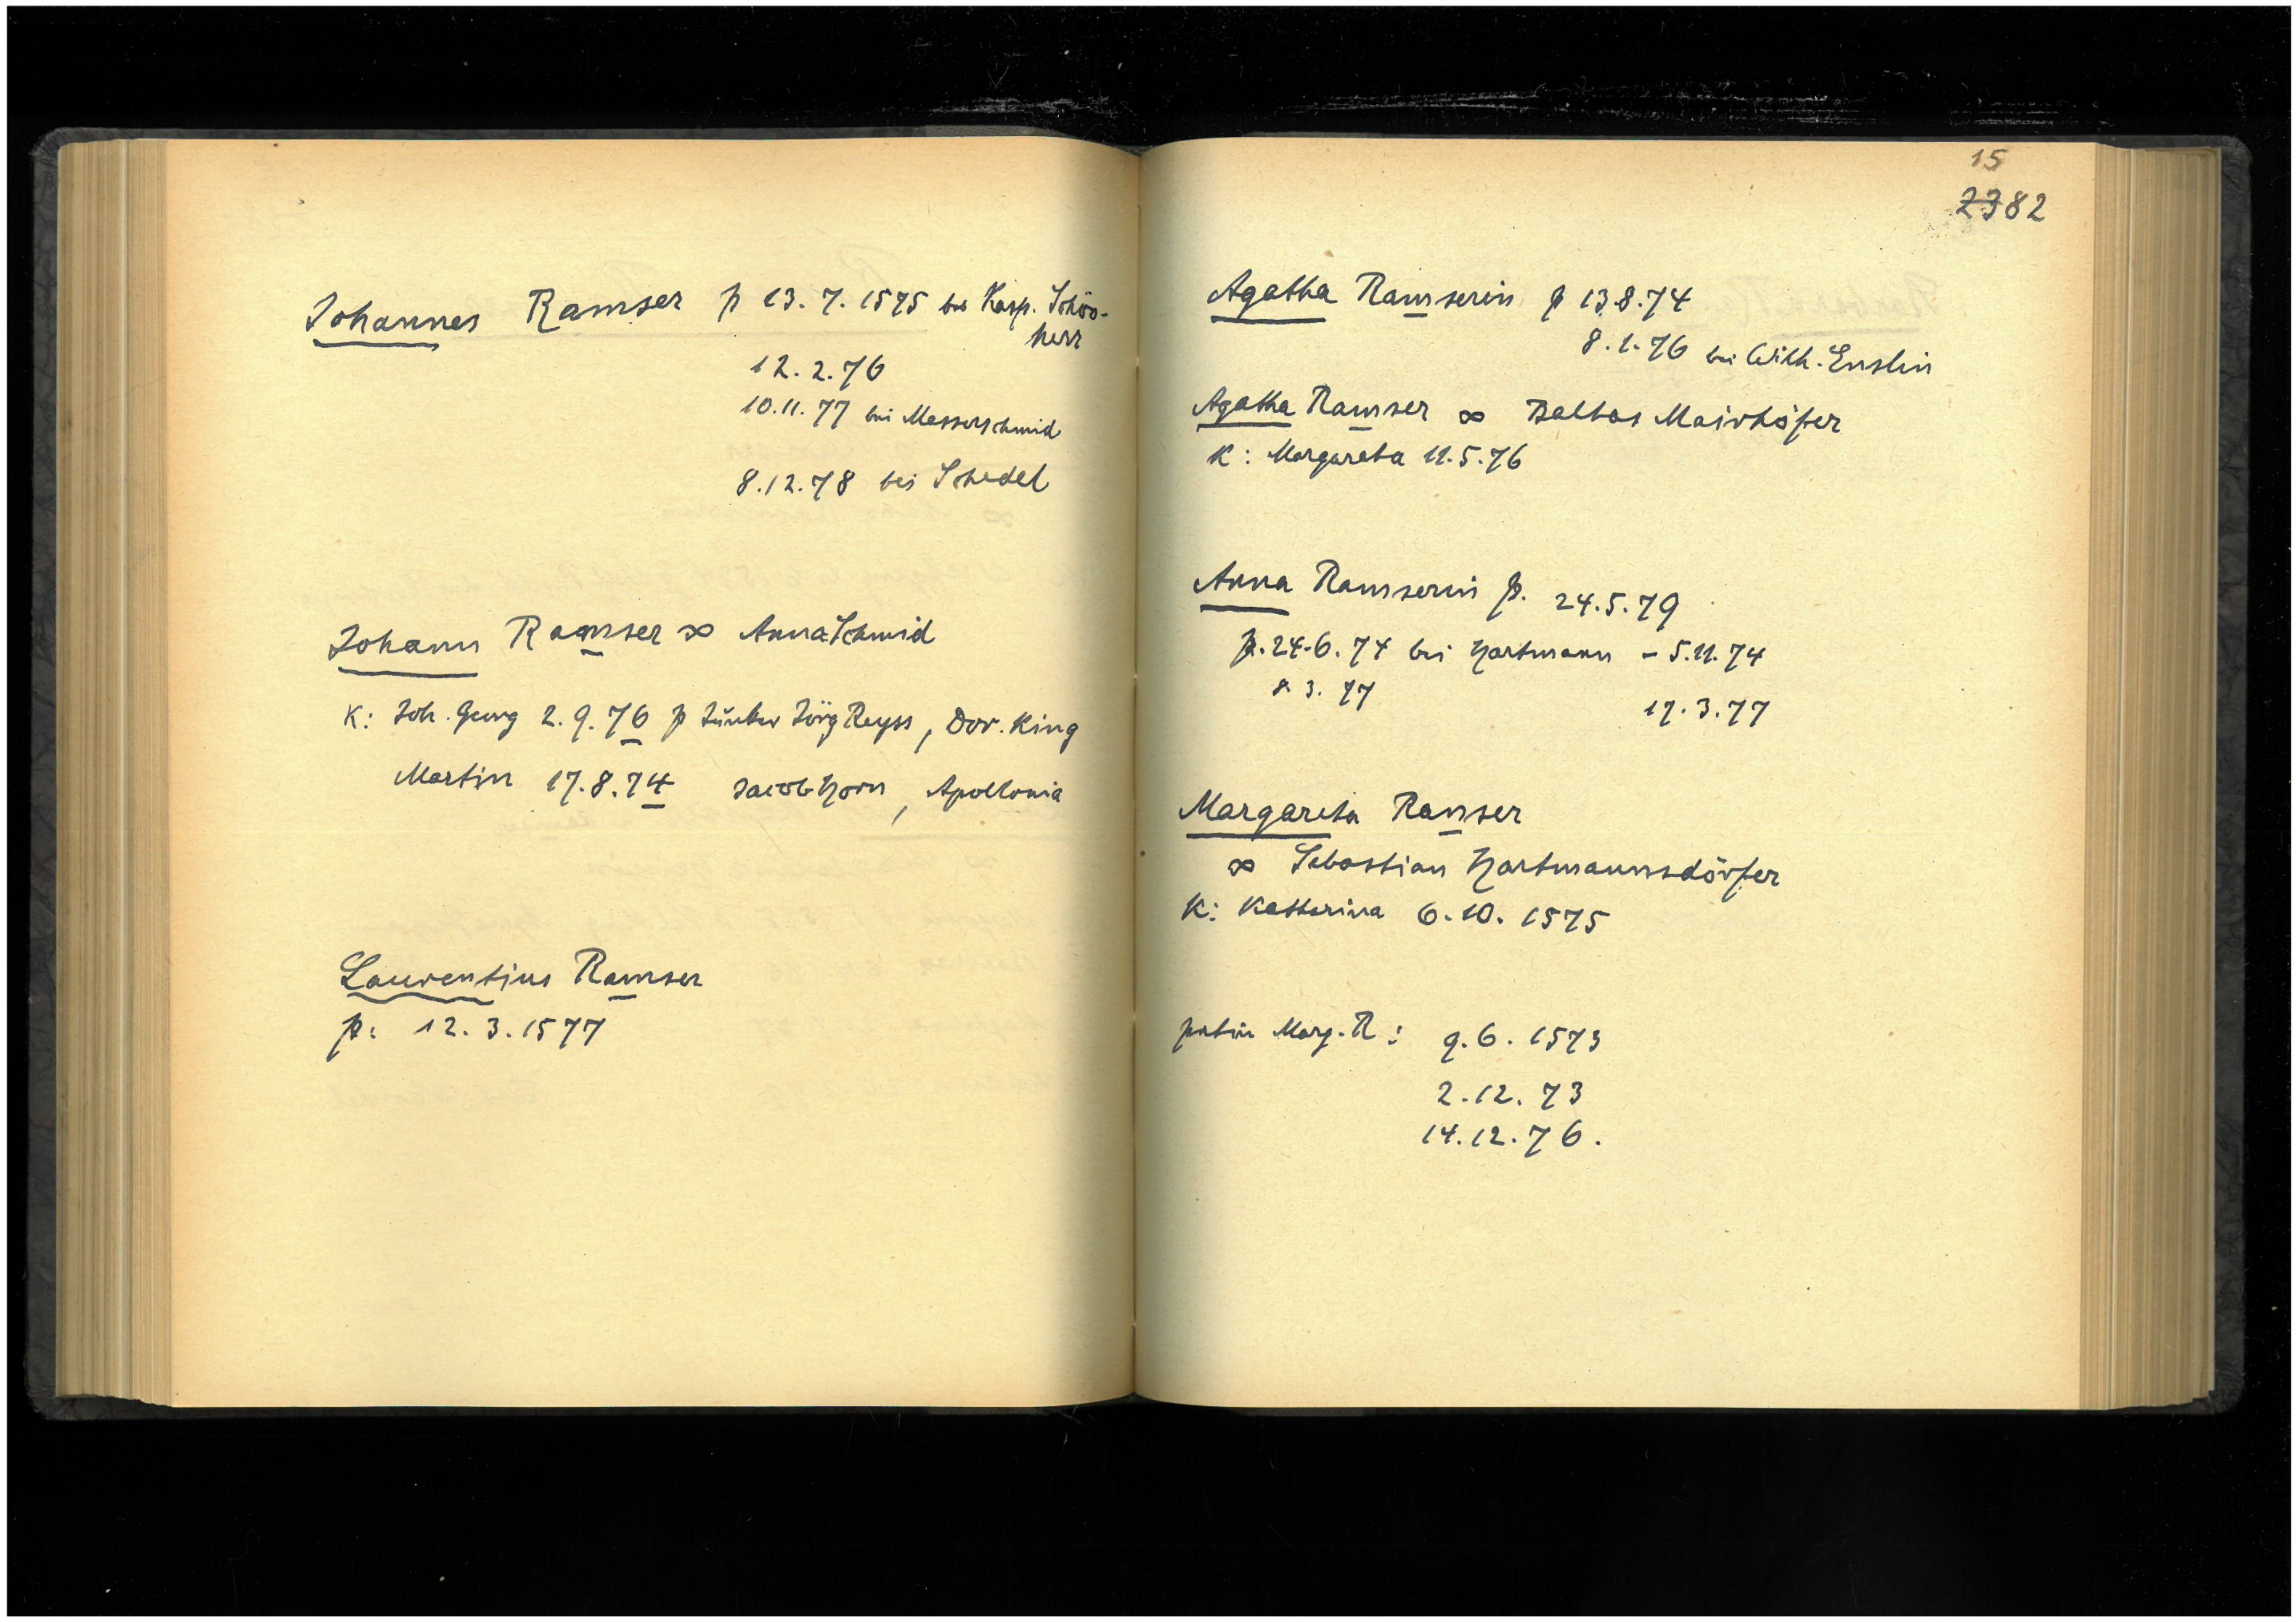 Johannes Ramser p 13. 7. 1575 bei Kasp. Schön-
herr
12. 2. 76
10. 11. 77 bei Messerschmid
8. 12. 78 bei Schedel
Johann Ramser ∞ Anna Schmid
K: Joh. Georg 2. 9. 76 p Junker Jörg Reyss, Dor. King
Martin 17. 8. 74 Jacob Horn, Apollonia
Laurentius Ramser
p: 12. 3. 1577
15
2382
Agatha Ramserin p 13. 8. 74
8. 1. 76 bei Wilh. Enslin
Agatha Ramser ∞ Baltas Mairhöfer
K: Margareta 11. 5. 76
Anna Ramserin p. 24. 5. 79
p. 24. 6. 74 bei Hartmann – 5. 11. 74
8. 3. 77
17. 3. 77
Margareta Ramser
∞ Sebastian Hartmannsdörfer
K: Katharina 6. 10. 1575
patin Marg. R: 9. 6. 1573
2. 12. 73
14. 12. 76.